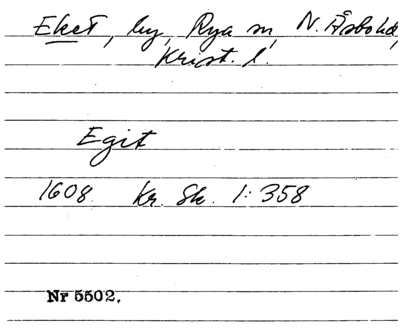 Eket, by, Rya sn, N. Åsbo hd,
Krist. l.
Egit
1608. Kr. Sk. 1: 358
Nr 5502.